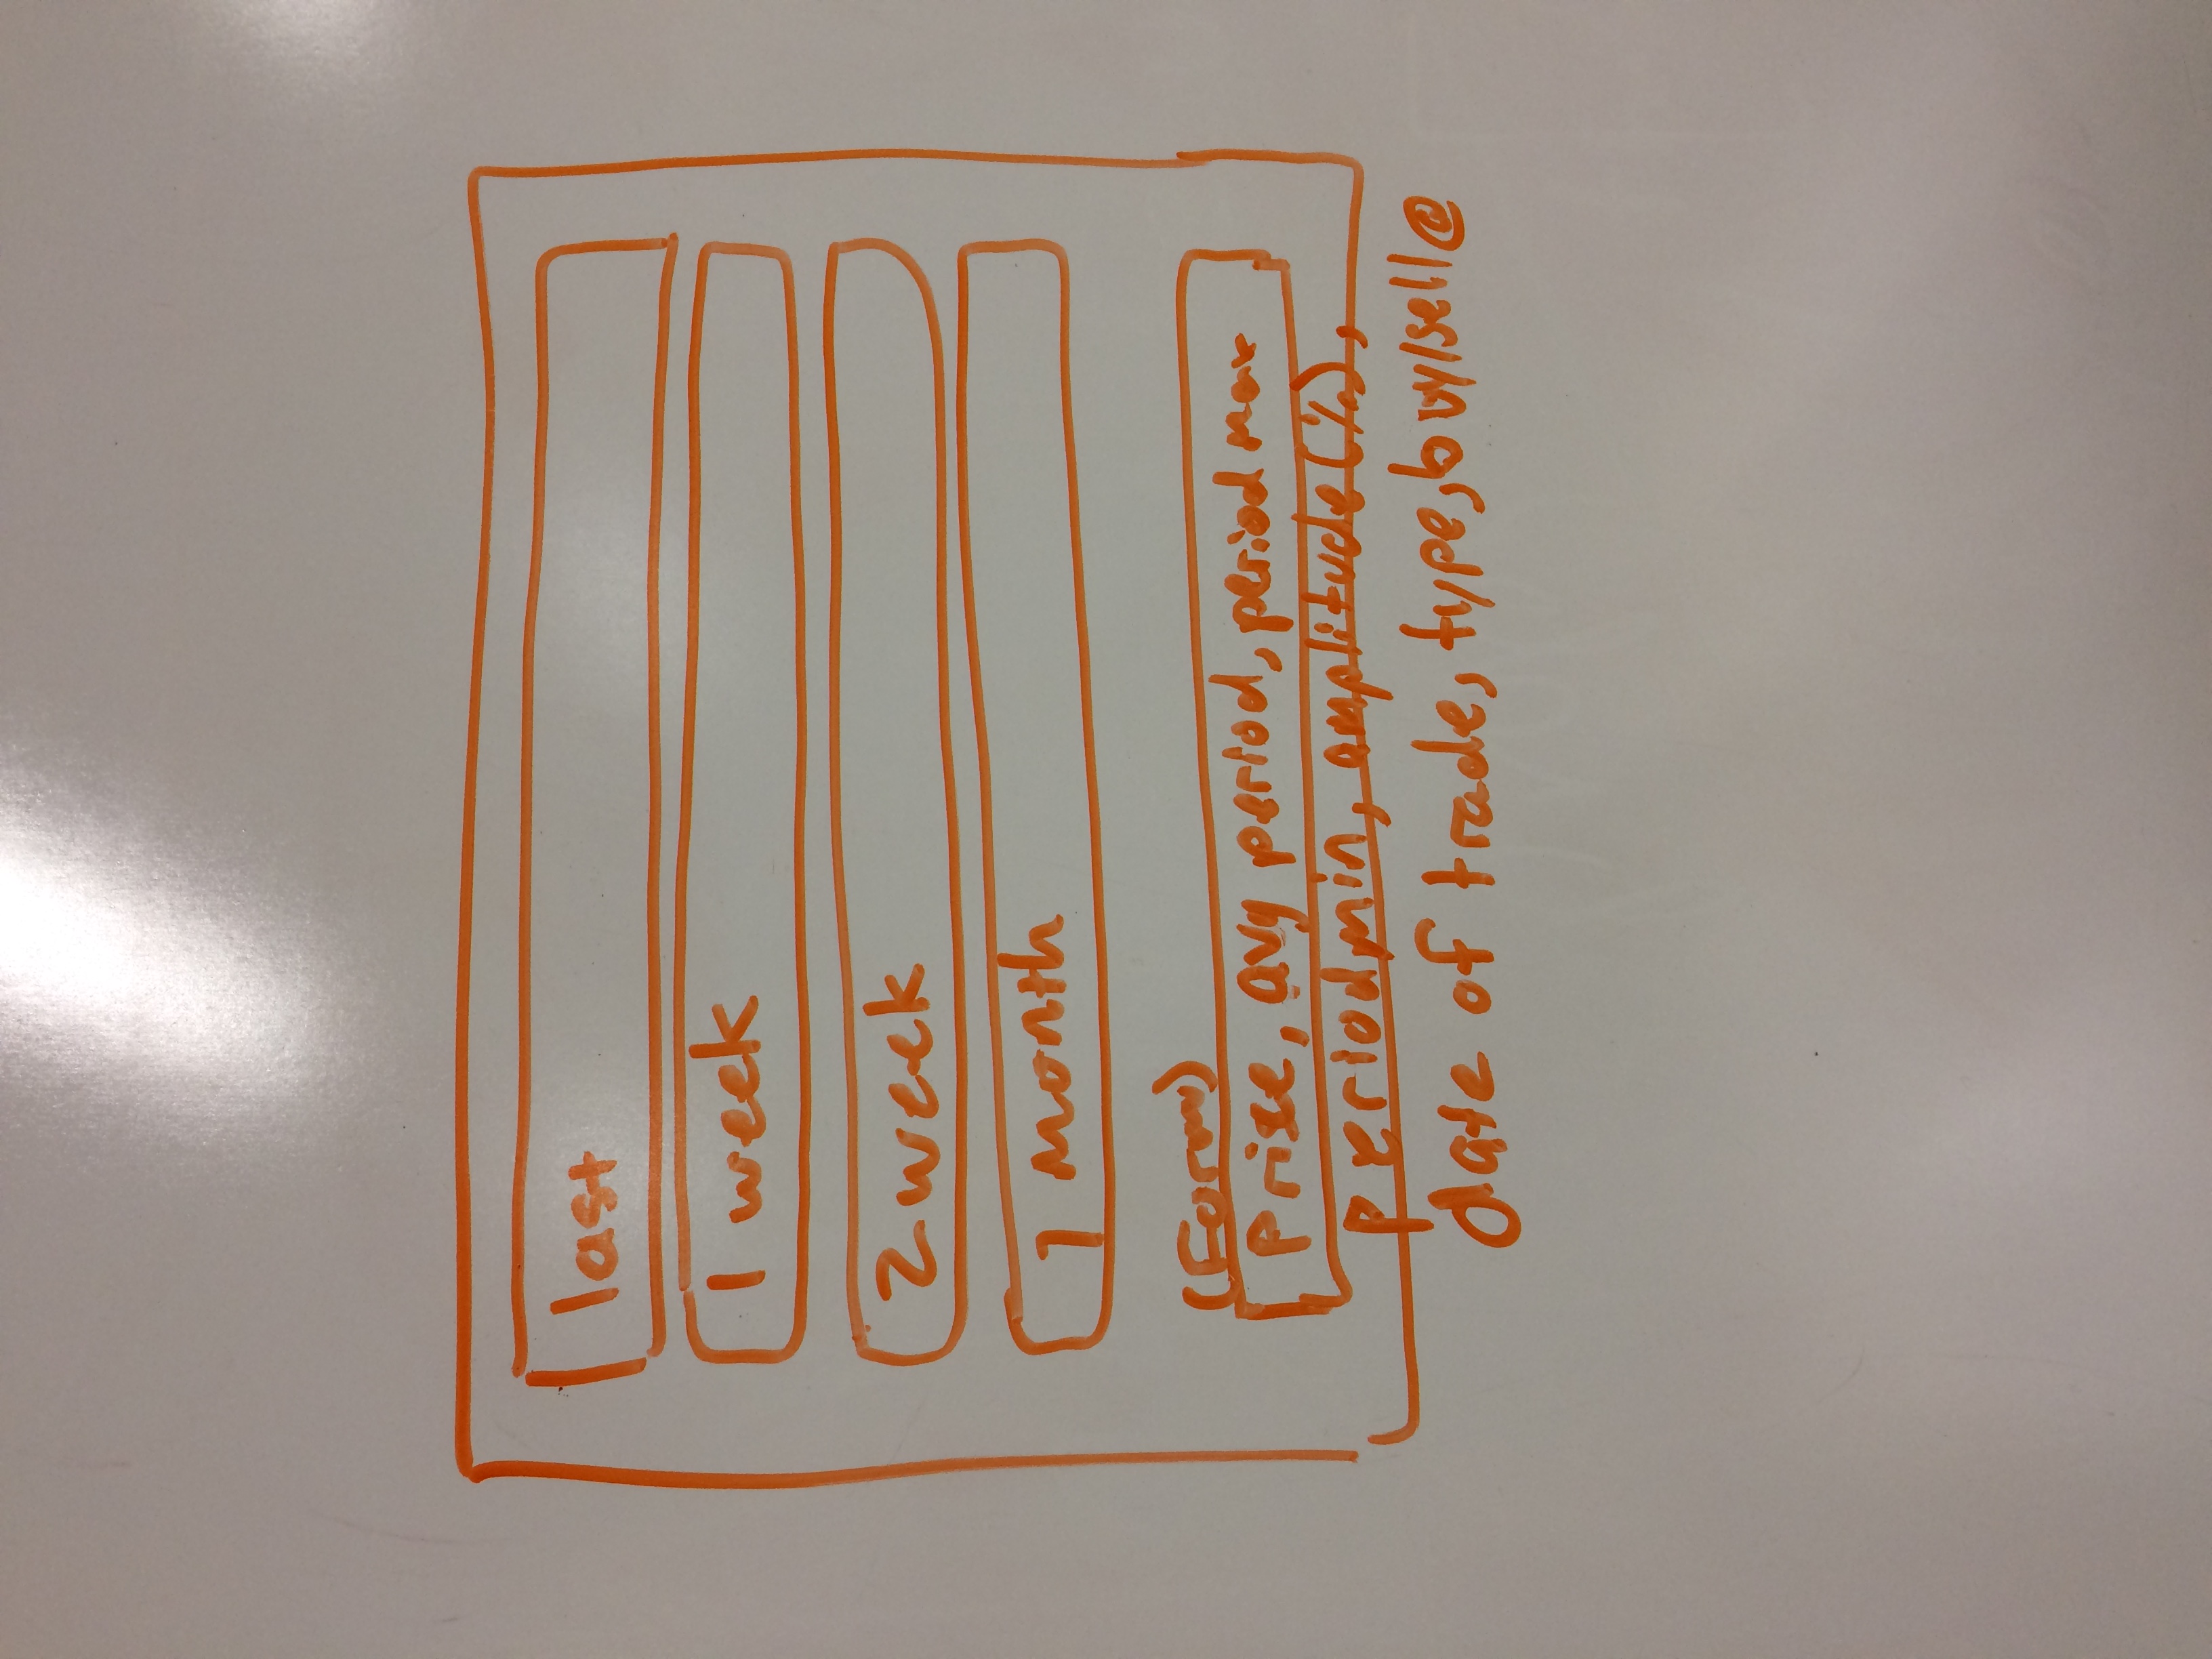 last
1 week
2 week
1 Month
(Form)
Prise, avg period, period max
periodmin, amplitude (%),
date of trade, type, buy/sell @